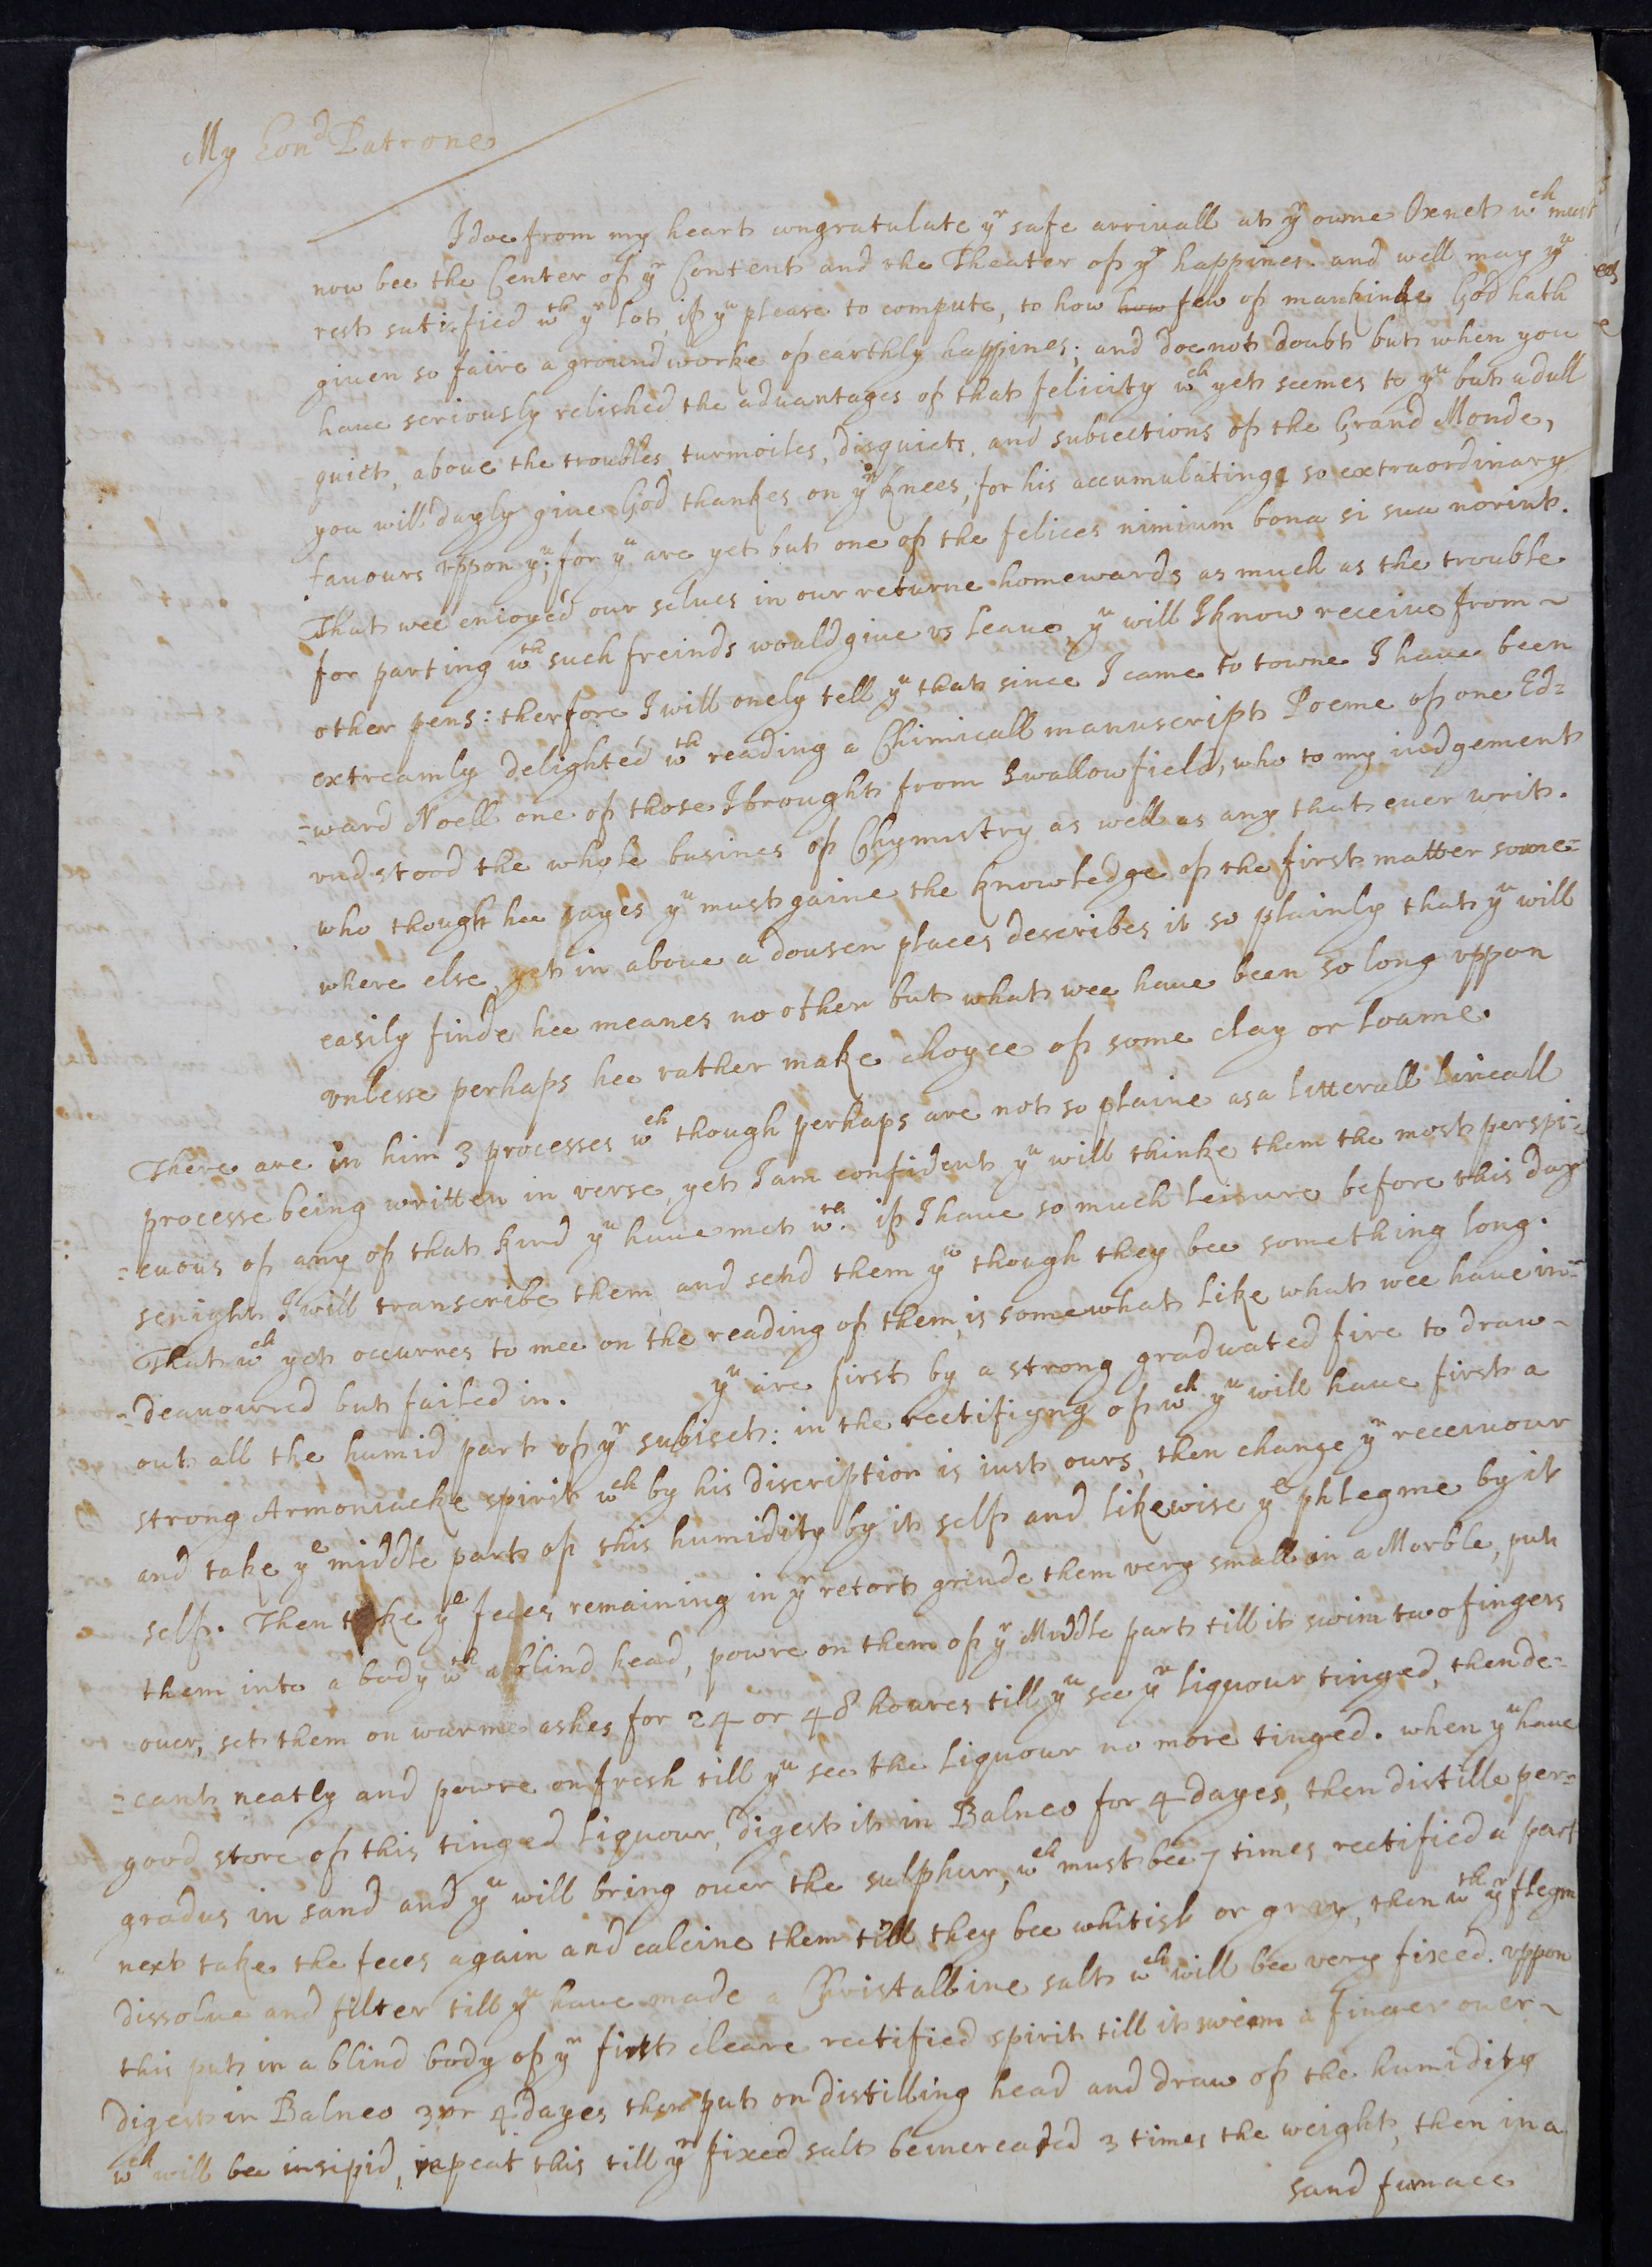 My Hon^d Patrone
I doe from my heart congratulate y^r safe arriuall at y^r owne Oxnet w^ch must
now bee the Center of y^r Content and the Theater of y^r happines. and well may y^u
rest satisfied w^th y^r Lot, if y^u please to compute, to how how few of mankinde God hath
giuen so faire a groundworke of earthly happines; and doe not doubt but when you
haue seriously relished the aduantages of that felicity w^ch yet seemes to y^u but a dull
quiet, aboue the troubles, turmoiles, disquiets, and subiections of the Grand Monde,
you will dayly giue God thankes on y^r knees, for his accumulatinge so extraordinary
fauours vppon y^u; for y^u are yet but one of the felices nimium bona si sua norint.
That wee enioyed our selues in our returne homewards as much as the trouble
for parting w^th such freinds would giue vs Leaue, y^u will I know receiue from~
other pens: therfore I will onely tell y^u that since I came to towne I haue been
extreamly delighted w^th reading a Chimicall manuscript Poeme of one Ed=
=ward Noell one of those I brought from Swallowfield, who to my iudgement
vndstood the whole busines of Chymistry as well as any that euer writ.
who though hee sayes y^u must gaine the knowledge of the first matter some=
where else, yet in aboue a dousen places describes it so plainly that y^u will
easily finde hee meanes no other but what wee haue been so long vppon
vnlesse perhaps hee rather make choyce of some clay or Loame.
There are in him 3 processes w^ch though perhaps are not so plaine as a Litterall Lineall
processe being written in verse, yet I am confident y^u will thinke them the most perspi=
=cuous of any of that kind y^u haue met w^th. if I haue so much Leisure before this day
senight I will transcribe them and send them y^u though they bee something long.
That w^ch yet occurres to mee on the reading of them, is somewhat Like what wee haue in=
=deauoured but failed in. y^u are first by a strong graduated fire to draw~
out all the humid part of y^r subiect: in the rectifiyng of w^ch y^u will haue first a
strong Armoniacke spirit w^ch by his discription is iust ours, then change y^r receiuour
and take y^e middle part of this humidity by it self and likewise y^e phlegme by it
self. Then take y^e feces remaining in y^r retort grinde them very small on a Marble, put
them into a body w^th a blind head, powre on them of y^r Middle part till it swim two fingers
ouer, set them on warme ashes for 24 or 48 houres till y^u see y^r Liquour tinged, then de=
=cant neatly and powre on fresh till y^u see the Liquour no more tinged. when y^u haue
good store of this tinged Liquour, digest it in Balneo for 4 dayes, then distille per=
gradus in sand and y^u will bring ouer the sulphur, w^ch must bee 7 times rectified a part
next take the feces again and calcine them till they bee whitish or gray, then w^th y^r flegm
dissolue and filter till y^u haue made a Christalline salt w^ch will bee very fixed. vppon
this put in a blind body of y^r first cleare rectified spirit till it swim a finger ouer~
Digest in Balneo 3 or 4 dayes then put on distilling head and draw of the humidity
w^ch will bee insipid, repeat this till y^r fixed salt be increased 3 times the weight, then in a
sand furnace